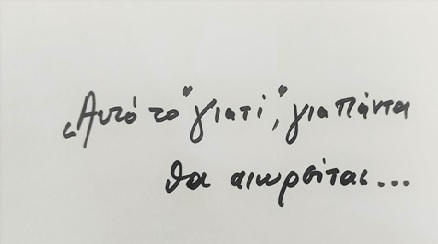 «Αυτό το "γιατί", για πάντα
θα αιωρείται...